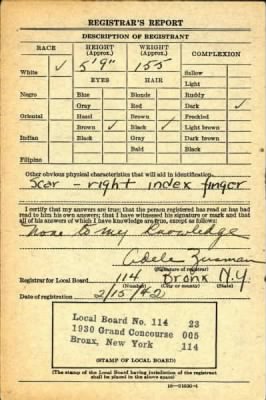 REGISTRAR'S REPORT
DESCRIPTION OF REGISTRANT
RACE HEIGHT (Approx.) WEIGHT (Approx.) COMPLEXION
White ✓ 5'9" 155 Sallow
EYES HAIR Light
Negro Blue Blonde Ruddy
Gray Red Dark ✓
Oriental Hazel Brown Freckled
Brown ✓ Black ✓ Light brown
Indian Black Gray Dark brown
Bald Black
Filipino
Other obvious physical characteristics that will aid in identification
Scar - right index finger
I certify that my answers are true; that the person registered has read or has had
read to him his own answers; that I have witnessed his signature or mark and that
all of his answers of which I have knowledge are true, except as follows:
None to my knowledge
Adele Zusman
(Signature of registrar)
Registrar for Local Board 114 Bronx N.Y.
(Number) (City or county) (State)
Date of registration 2/15/42
Local Board No. 114 23
1930 Grand Concourse 005
Bronx, New York 114
(STAMP OF LOCAL BOARD)
(The stamp of the Local Board having jurisdiction of the registrant
shall be placed in the above space)